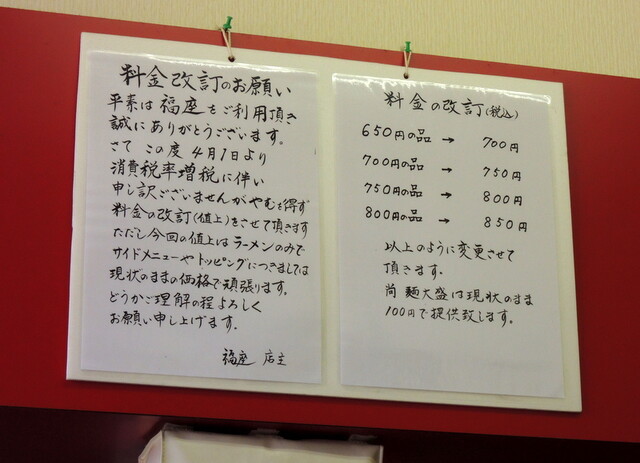 料金改訂のお願い
平素は福座をご利用頂き
誠にありがとうございます。
さて この度 4月1日より
消費税率増税に伴い
申し訳ございませんがやむを得ず
料金の改訂(値上)をさせて頂きます
ただし今回の値上はラーメンのみで
サイドメニューやトッピングにつきましては
現状のままの価格で頑張ります。
どうかご理解の程よろしく
お願い申し上げます。
福座 店主
料金の改訂(税込)
650円の品 → 700円
700円の品 → 750円
750円の品 → 800円
800円の品 → 850円
以上のように変更させて
頂きます。
尚 麺大盛は現状のまま
100円で提供致します。